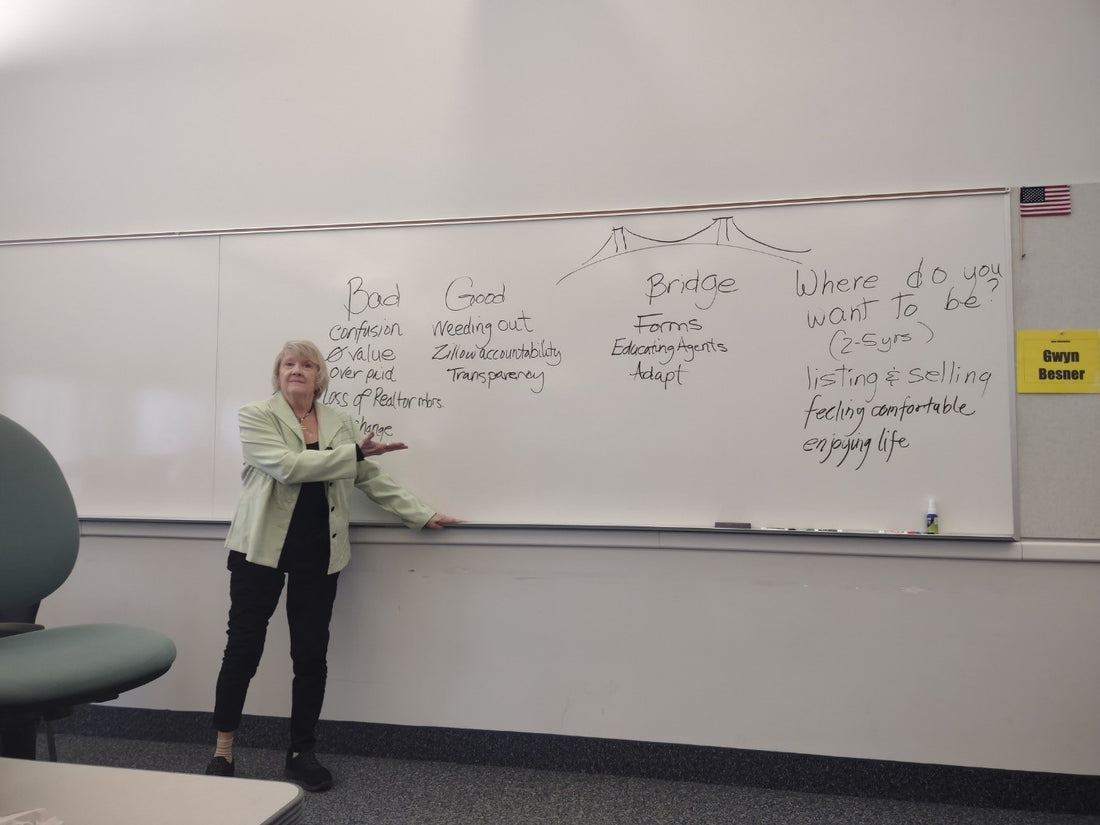 Bad
confusion
Ø value
over paid
Loss of Realtor mbrs.
change
Good
Weeding out
Zillow accountability
Transparency
Bridge
Forms
Educating Agents
Adapt
Where do you
want to be?
(2-5 yrs)
listing & selling
feeling comfortable
enjoying life
Gwyn
Besner